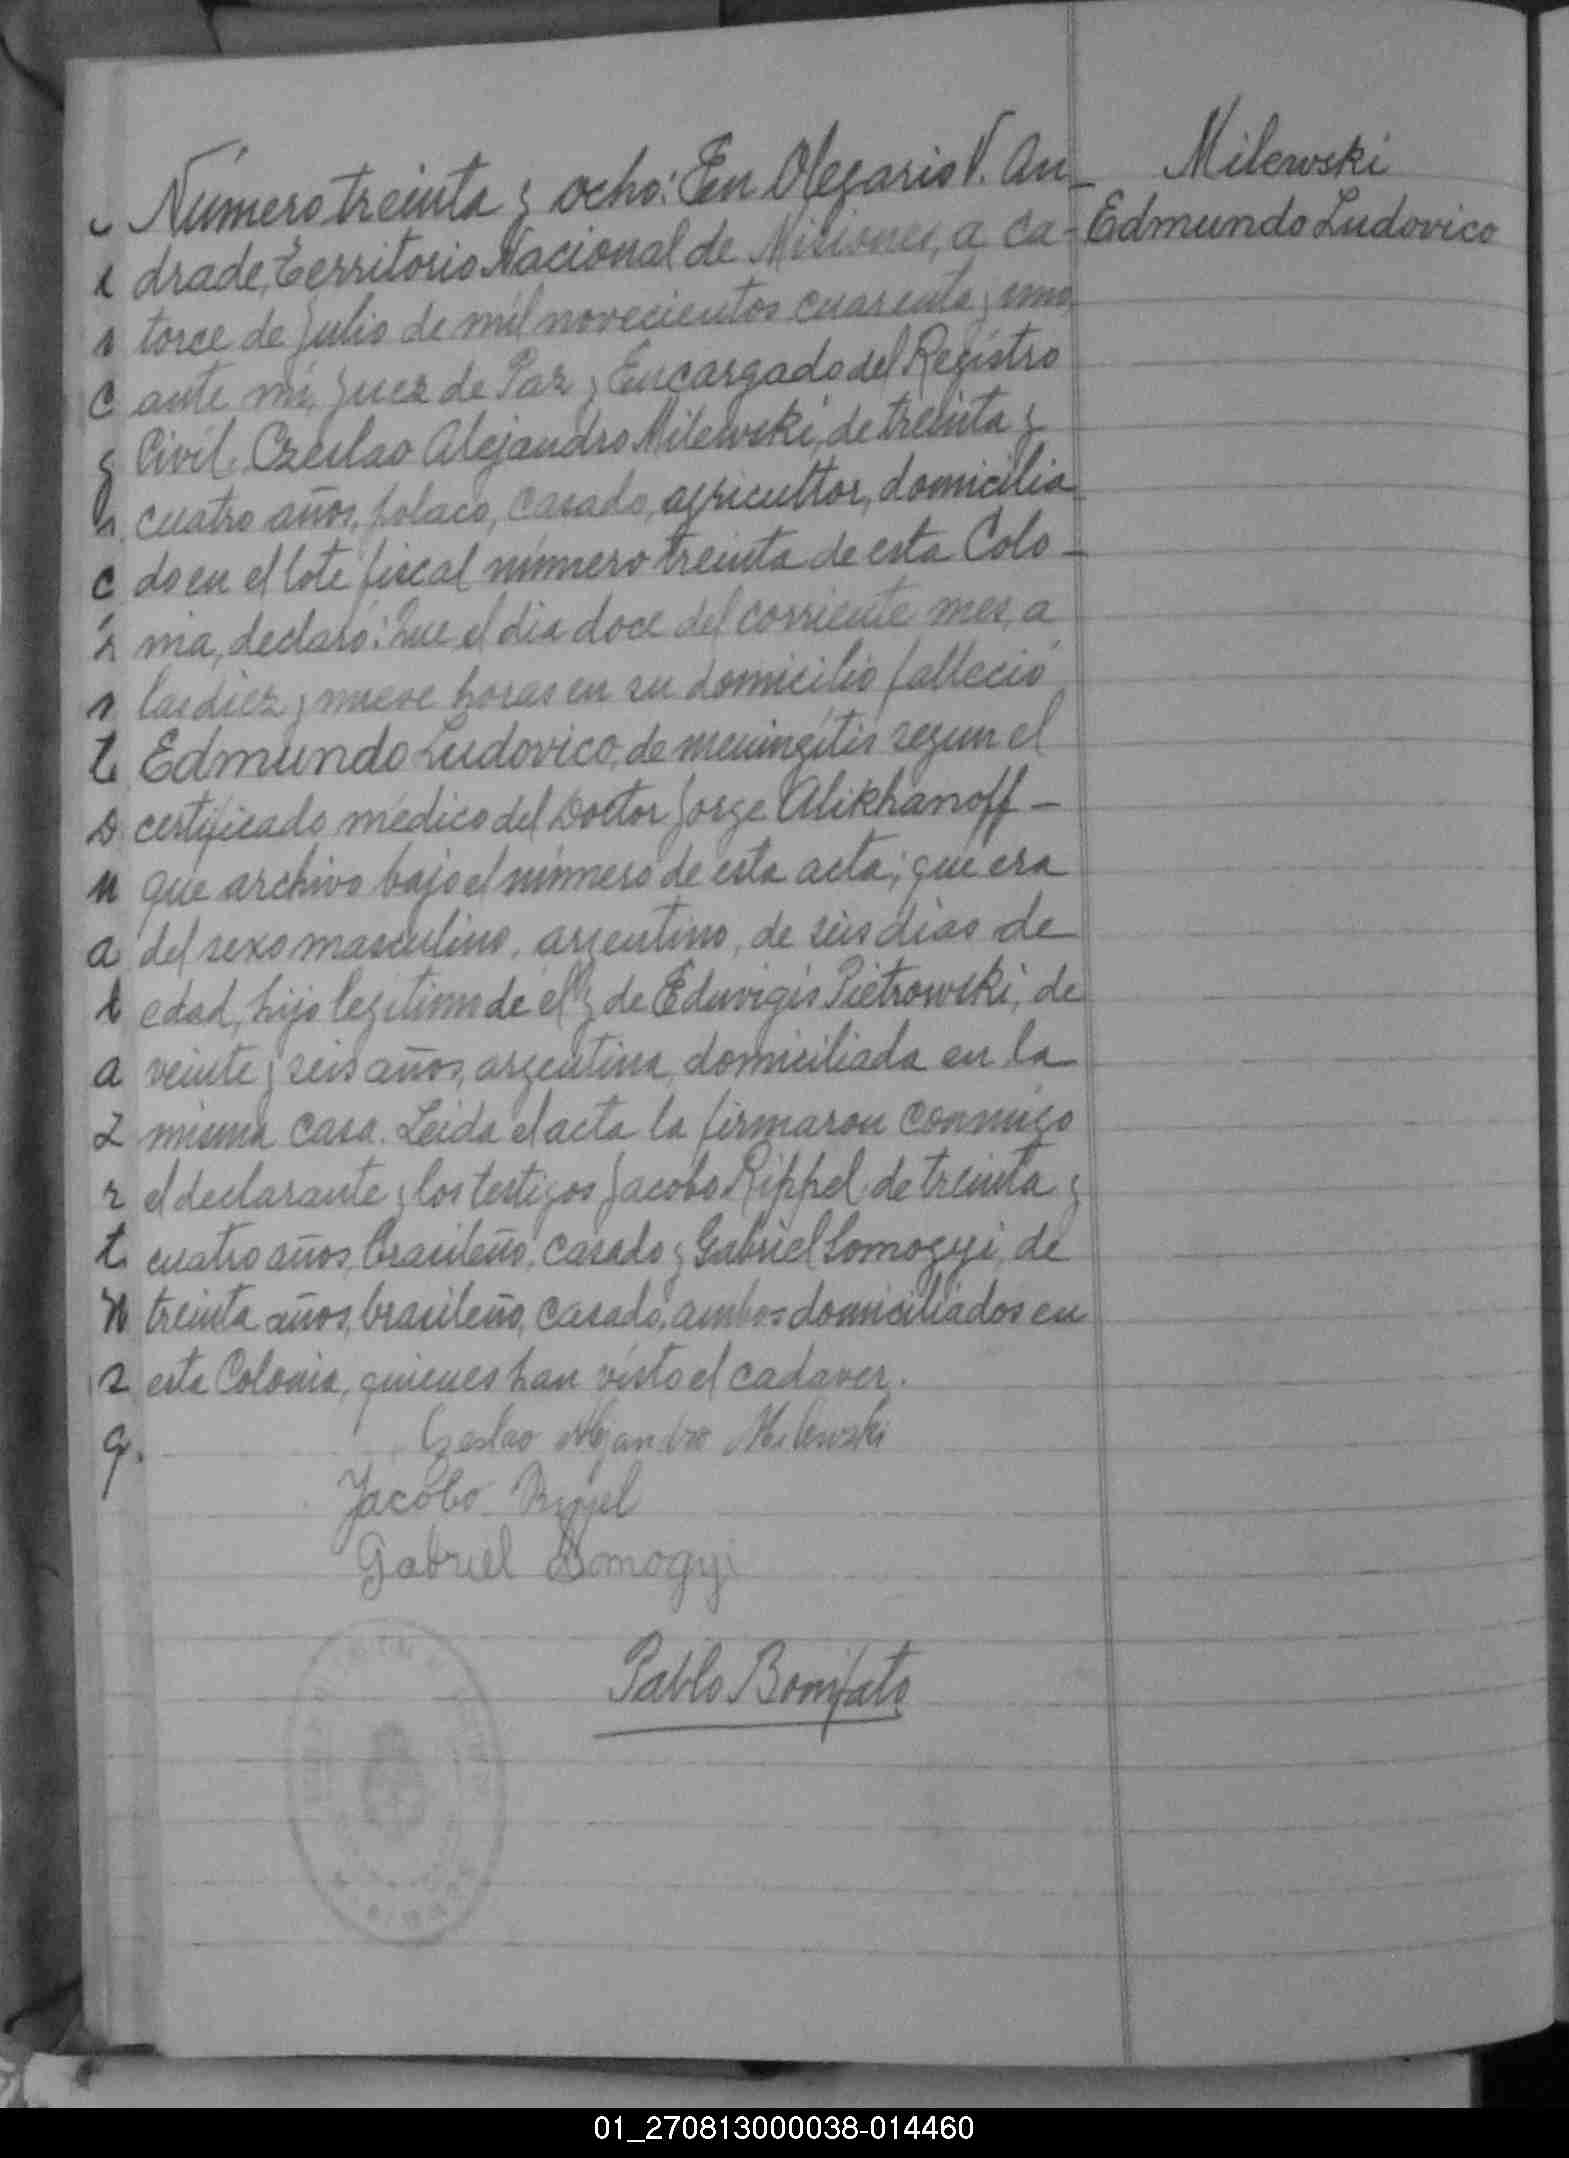 Número treinta y ocho: En Olegario V. An-
drade, Territorio Nacional de Misiones, a ca-
torce de Julio de mil novecientos cuarenta y uno,
ante mí, Juez de Paz y Encargado del Registro
Civil, Czeslao Alejandro Milewski, de treinta y
cuatro años, polaco, casado, agricultor, domicilia
do en el lote fiscal número treinta de esta Colo-
nia, declaró: Que el dia doce del corriente mes, a
las diez y nueve horas en su domicilio falleció
Edmundo Ludovico, de meningítis segun el
certificado médico del Doctor Jorge Alikhanoff-
que archivo bajo el número de esta acta; que era
del sexo masculino, argentino, de seis dias de
edad, hijo legítimo de él y de Eduvigis Pietrowski, de
veinte y seis años, argentina, domiciliada en la
misma casa. Leida el acta la firmaron conmigo
el declarante y los testigos Jacobo Rippel de treinta y
cuatro años, brasileño, casado y Gabriel Somogyi, de
treinta años, brasileño, casado, ambos domiciliados en
esta Colonia, quienes han visto el cadaver.
Czeslao Alejandro Milewski
Jacobo Rippel
Gabriel Somogyi
Pablo Bonifato
Milewski
Edmundo Ludovico
01_270813000038-014460